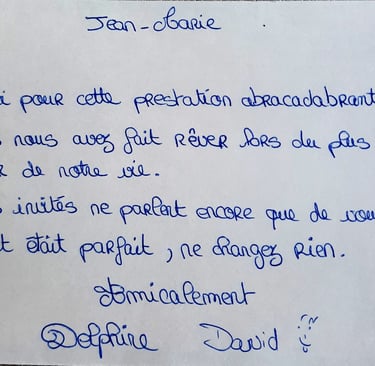 Jean-Marie
i pour cette prestation abracadabrant
s nous avez fait rêver lors du plus
R de notre vie.
s invités ne parlent encore que de vou
t était parfait, ne changez rien.
Amicalement
Delphine David